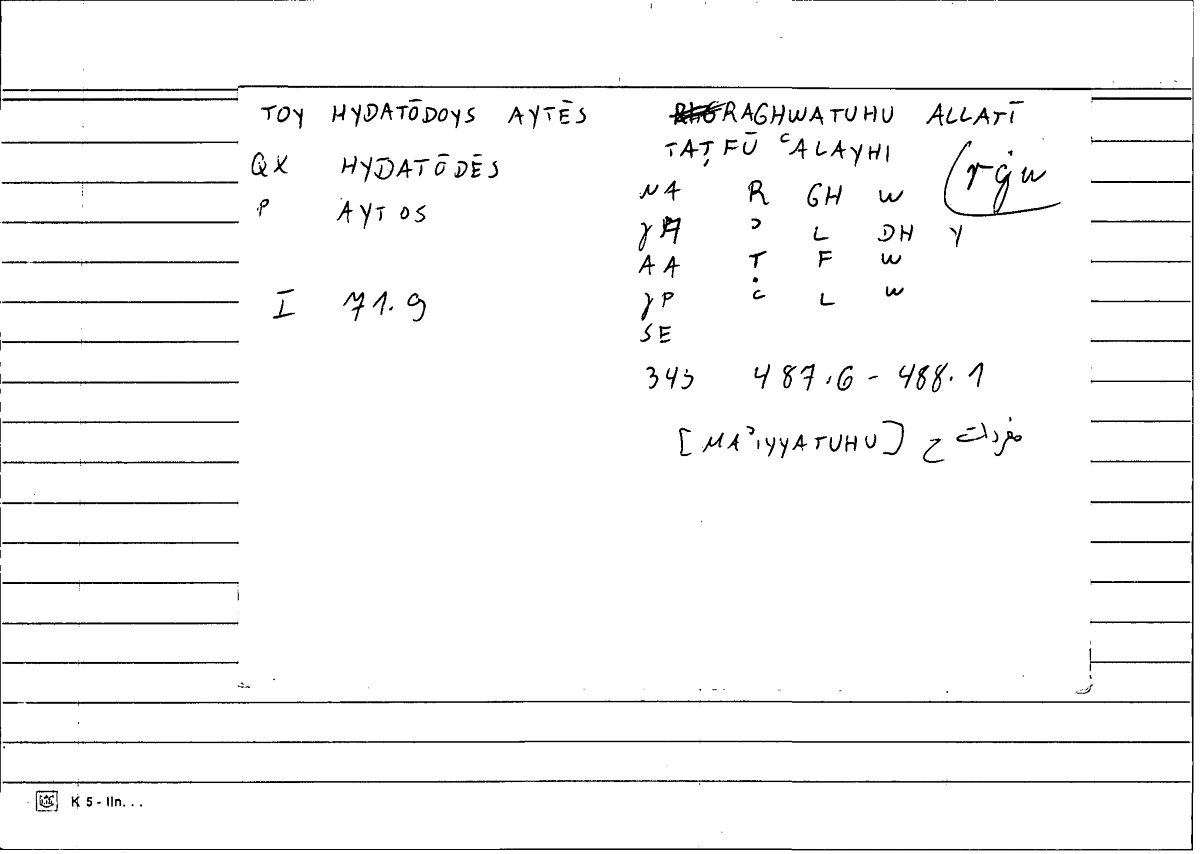 TOY HYDATŌDOYS AYTĒS
QX HYDATŌDĒS
P AYTOS
I 71.9
RAGHWATUHU ALLATĪ
TAṬFŪ ʿALAYHI
(rġw
NA R GH W
γA ʾ L DH Y
AA Ṭ F W
γP ʿ L W
SE
343 487.6 - 488.1
[MAʾIYYATUHU] ح مفردات
K 5 - IIn. . .